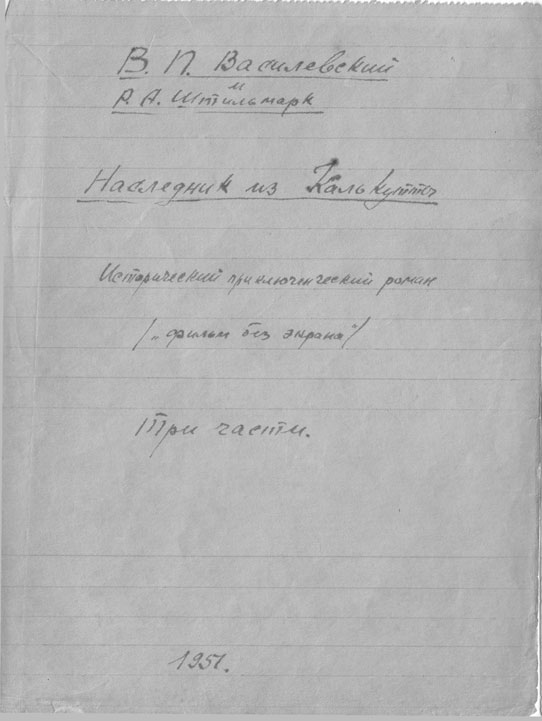 В. П. Василевский
и
Р. А. Штильмарк
Наследник из Калькутты
Исторический приключенческий роман
/„фильм без экрана"/
Три части.
1951.